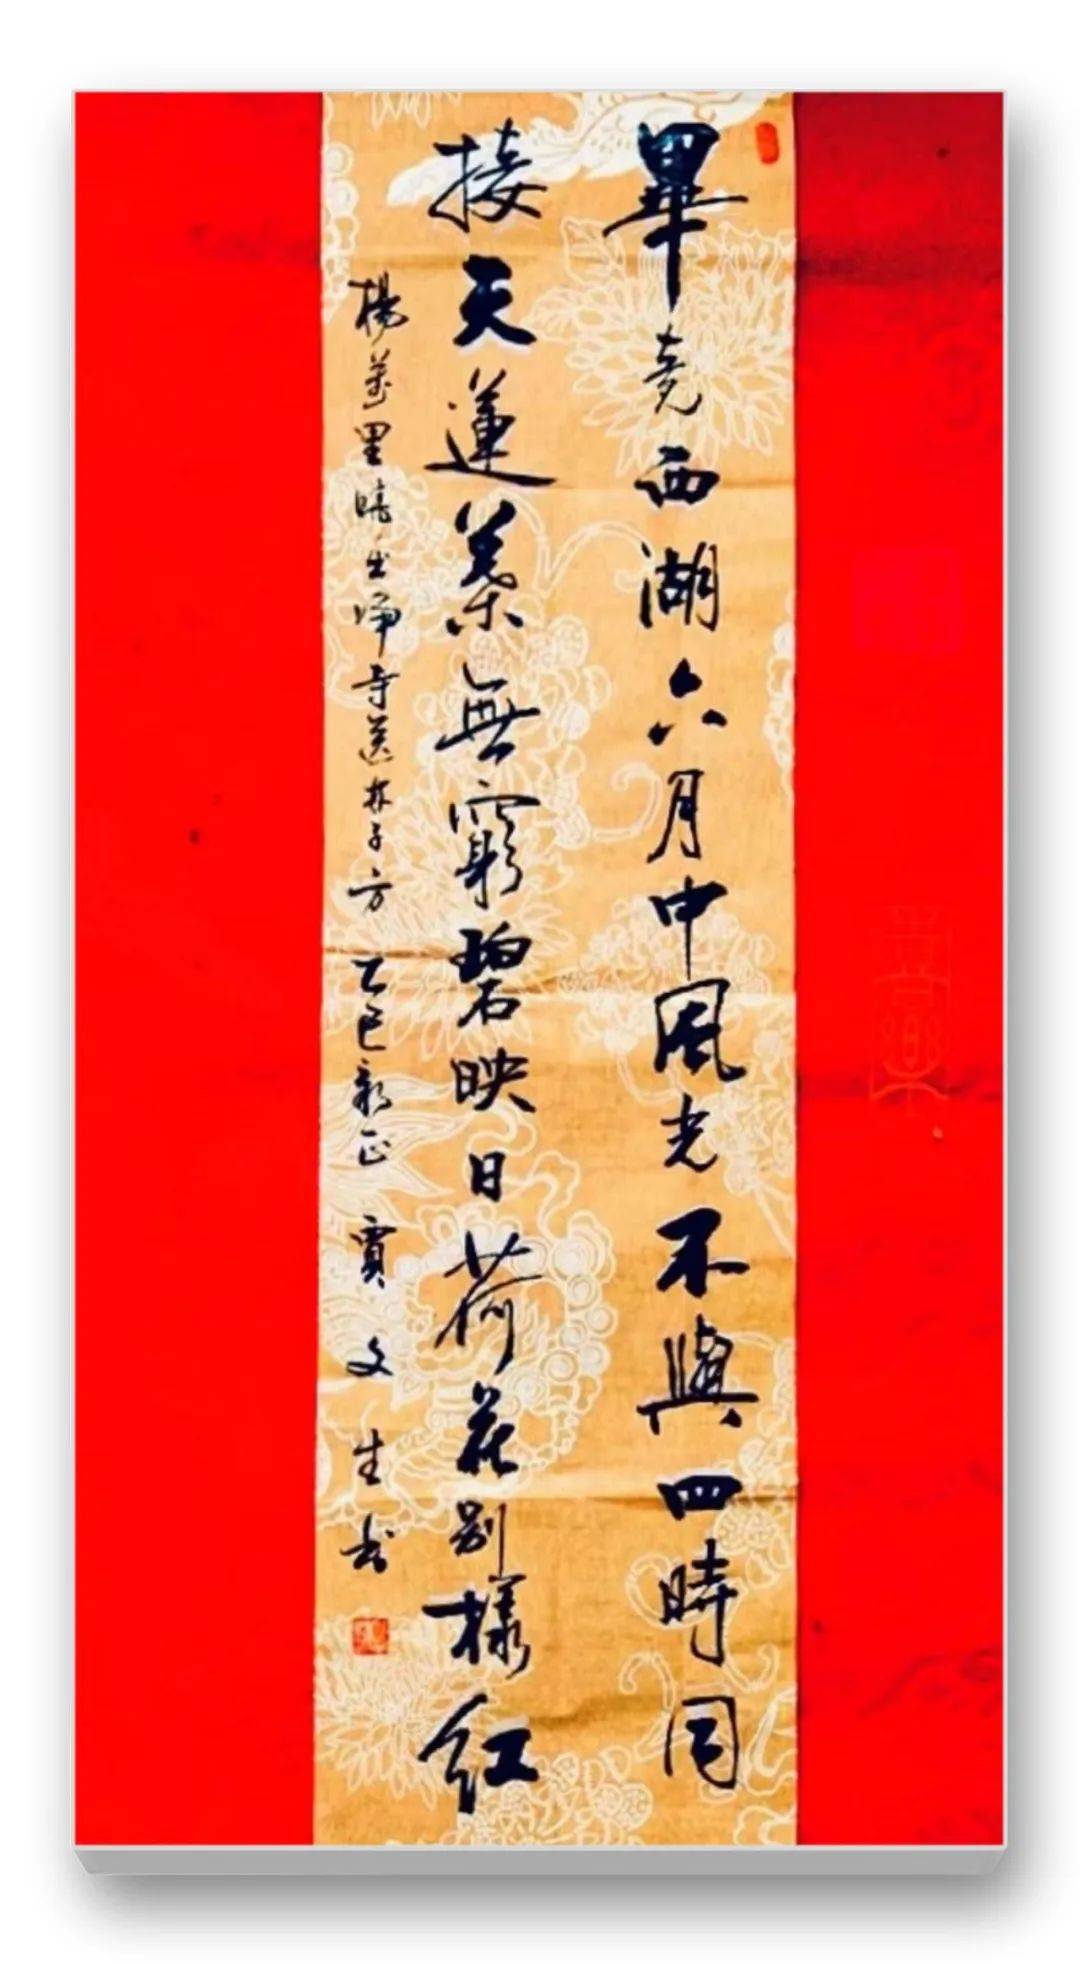 畢竟西湖六月中風光不與四時同
接天蓮葉無窮碧映日荷花別樣紅
楊萬里曉出淨寺送林子方 乙巳新正 賈文生书